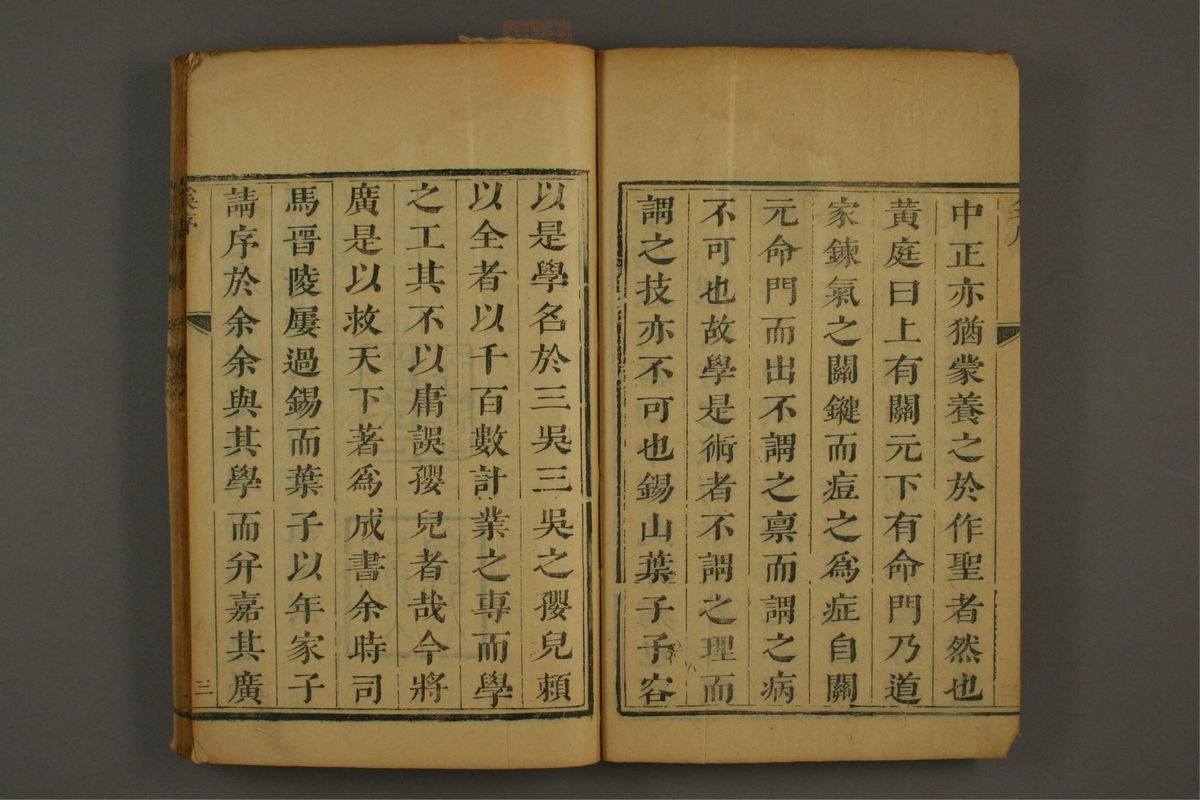 中正亦猶蒙養之於作聖者然也
黃庭曰上有關元下有命門乃道
家鍊氣之關鍵而痘之爲症自關
元命門而出不謂之禀而謂之病
不可也故學是術者不謂之理而
謂之技亦不可也錫山葉子子容
以是學名於三吳三吳之孾兒頼
以全者以千百數計業之專而學
之工其不以庸誤孾兒者哉今將
廣是以救天下著爲成書余時司
馬晋陵屢過錫而葉子以年家子
請序於余余與其學而弁嘉其廣
序
三